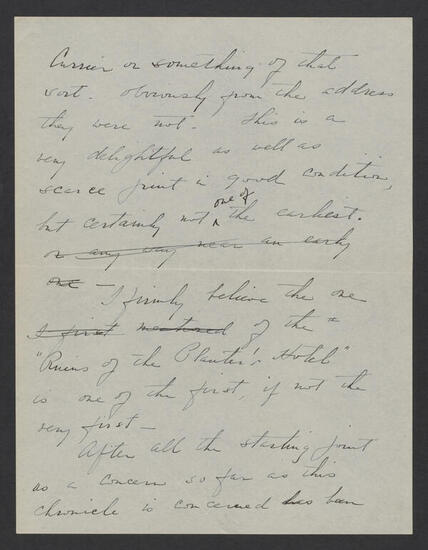 Currier or something of that
sort. Obviously from the address
they were not. This is a
very delightful as well as
scarce print in good condition,
but certainly not one of the earliest.
or any way near an early
one — I firmly believe the one
I first mentioned of the "
"Ruins of the Planter's Hotel"
is one of the first, if not the
very first —
After all the starting point
as a concern so far as this
chronicle is concerned has been